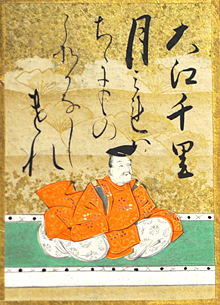 大江千里
月みれは
ちゝにもの
こそかなし
けれ